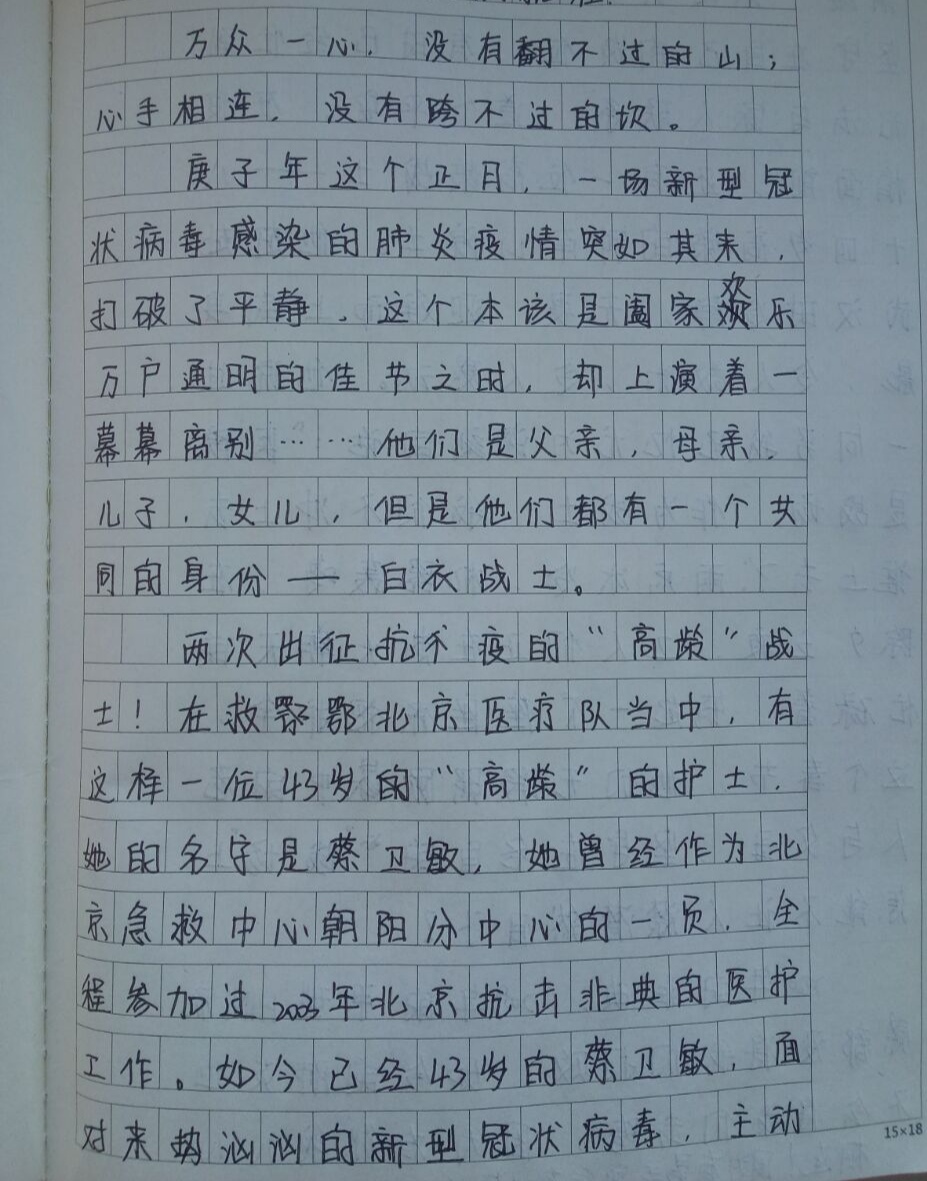 万众一心，没有翻不过的山；
心手相连，没有跨不过的坎。
庚子年这个正月，一场新型冠
状病毒感染的肺炎疫情突如其来，
打破了平静，这个本该是阖家欢乐
万户通明的佳节之时，却上演着一
幕幕离别……他们是父亲，母亲，
儿子，女儿，但是他们都有一个共
同的身份——白衣战士。
两次出征抗疫的“高龄”战
士！在救鄂北京医疗队当中，有
这样一位43岁的“高龄”的护士，
她的名字是蔡卫敏，她曾经作为北
京急救中心朝阳分中心的一员，全
程参加过2003年北京抗击非典的医护
工作。如今已经43岁的蔡卫敏，面
对来势汹汹的新型冠状病毒，主动
15×18